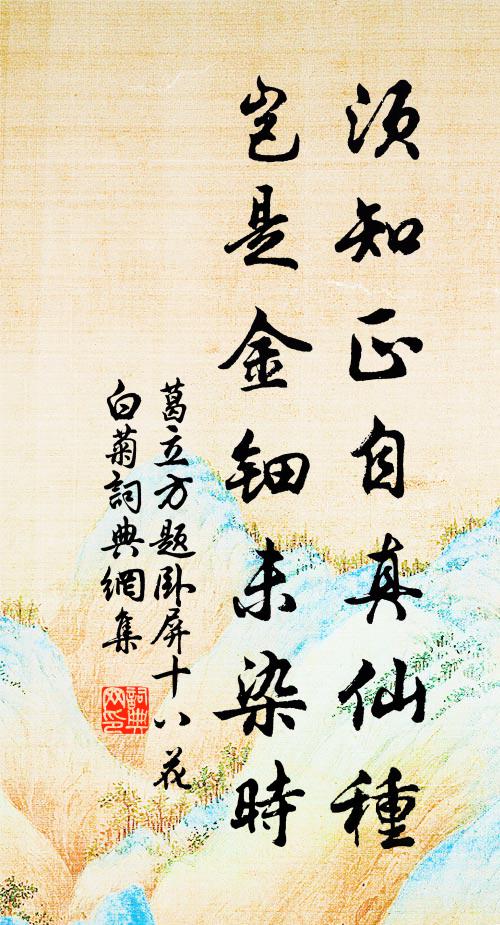 須知正自真仙種
豈是金鈿未染時
葛立方題臥屏十八花
白菊詞典網集
詞典
网印